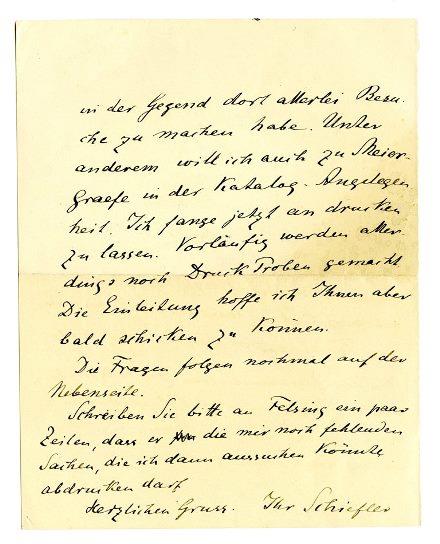 in der Gegend dort allerlei Besu-
che zu machen habe. Unter
anderem will ich auch zu Meier-
Graefe in der Katalog-Angelegen
heit. Ich fange jetzt an drucken
zu lassen. Vorläufig werden aller-
dings noch Druck Proben gemacht.
Die Einleitung hoffe ich Ihnen aber
bald schicken zu können.
Die Fragen folgen nochmal auf der
Nebenseite.
Schreiben Sie bitte an Felsing ein paar
Zeilen, dass er die mir noch fehlenden
Sachen, die ich dann aussuchen könnte,
abdrucken darf.
Herzlichen Gruss. Ihr Schiefler